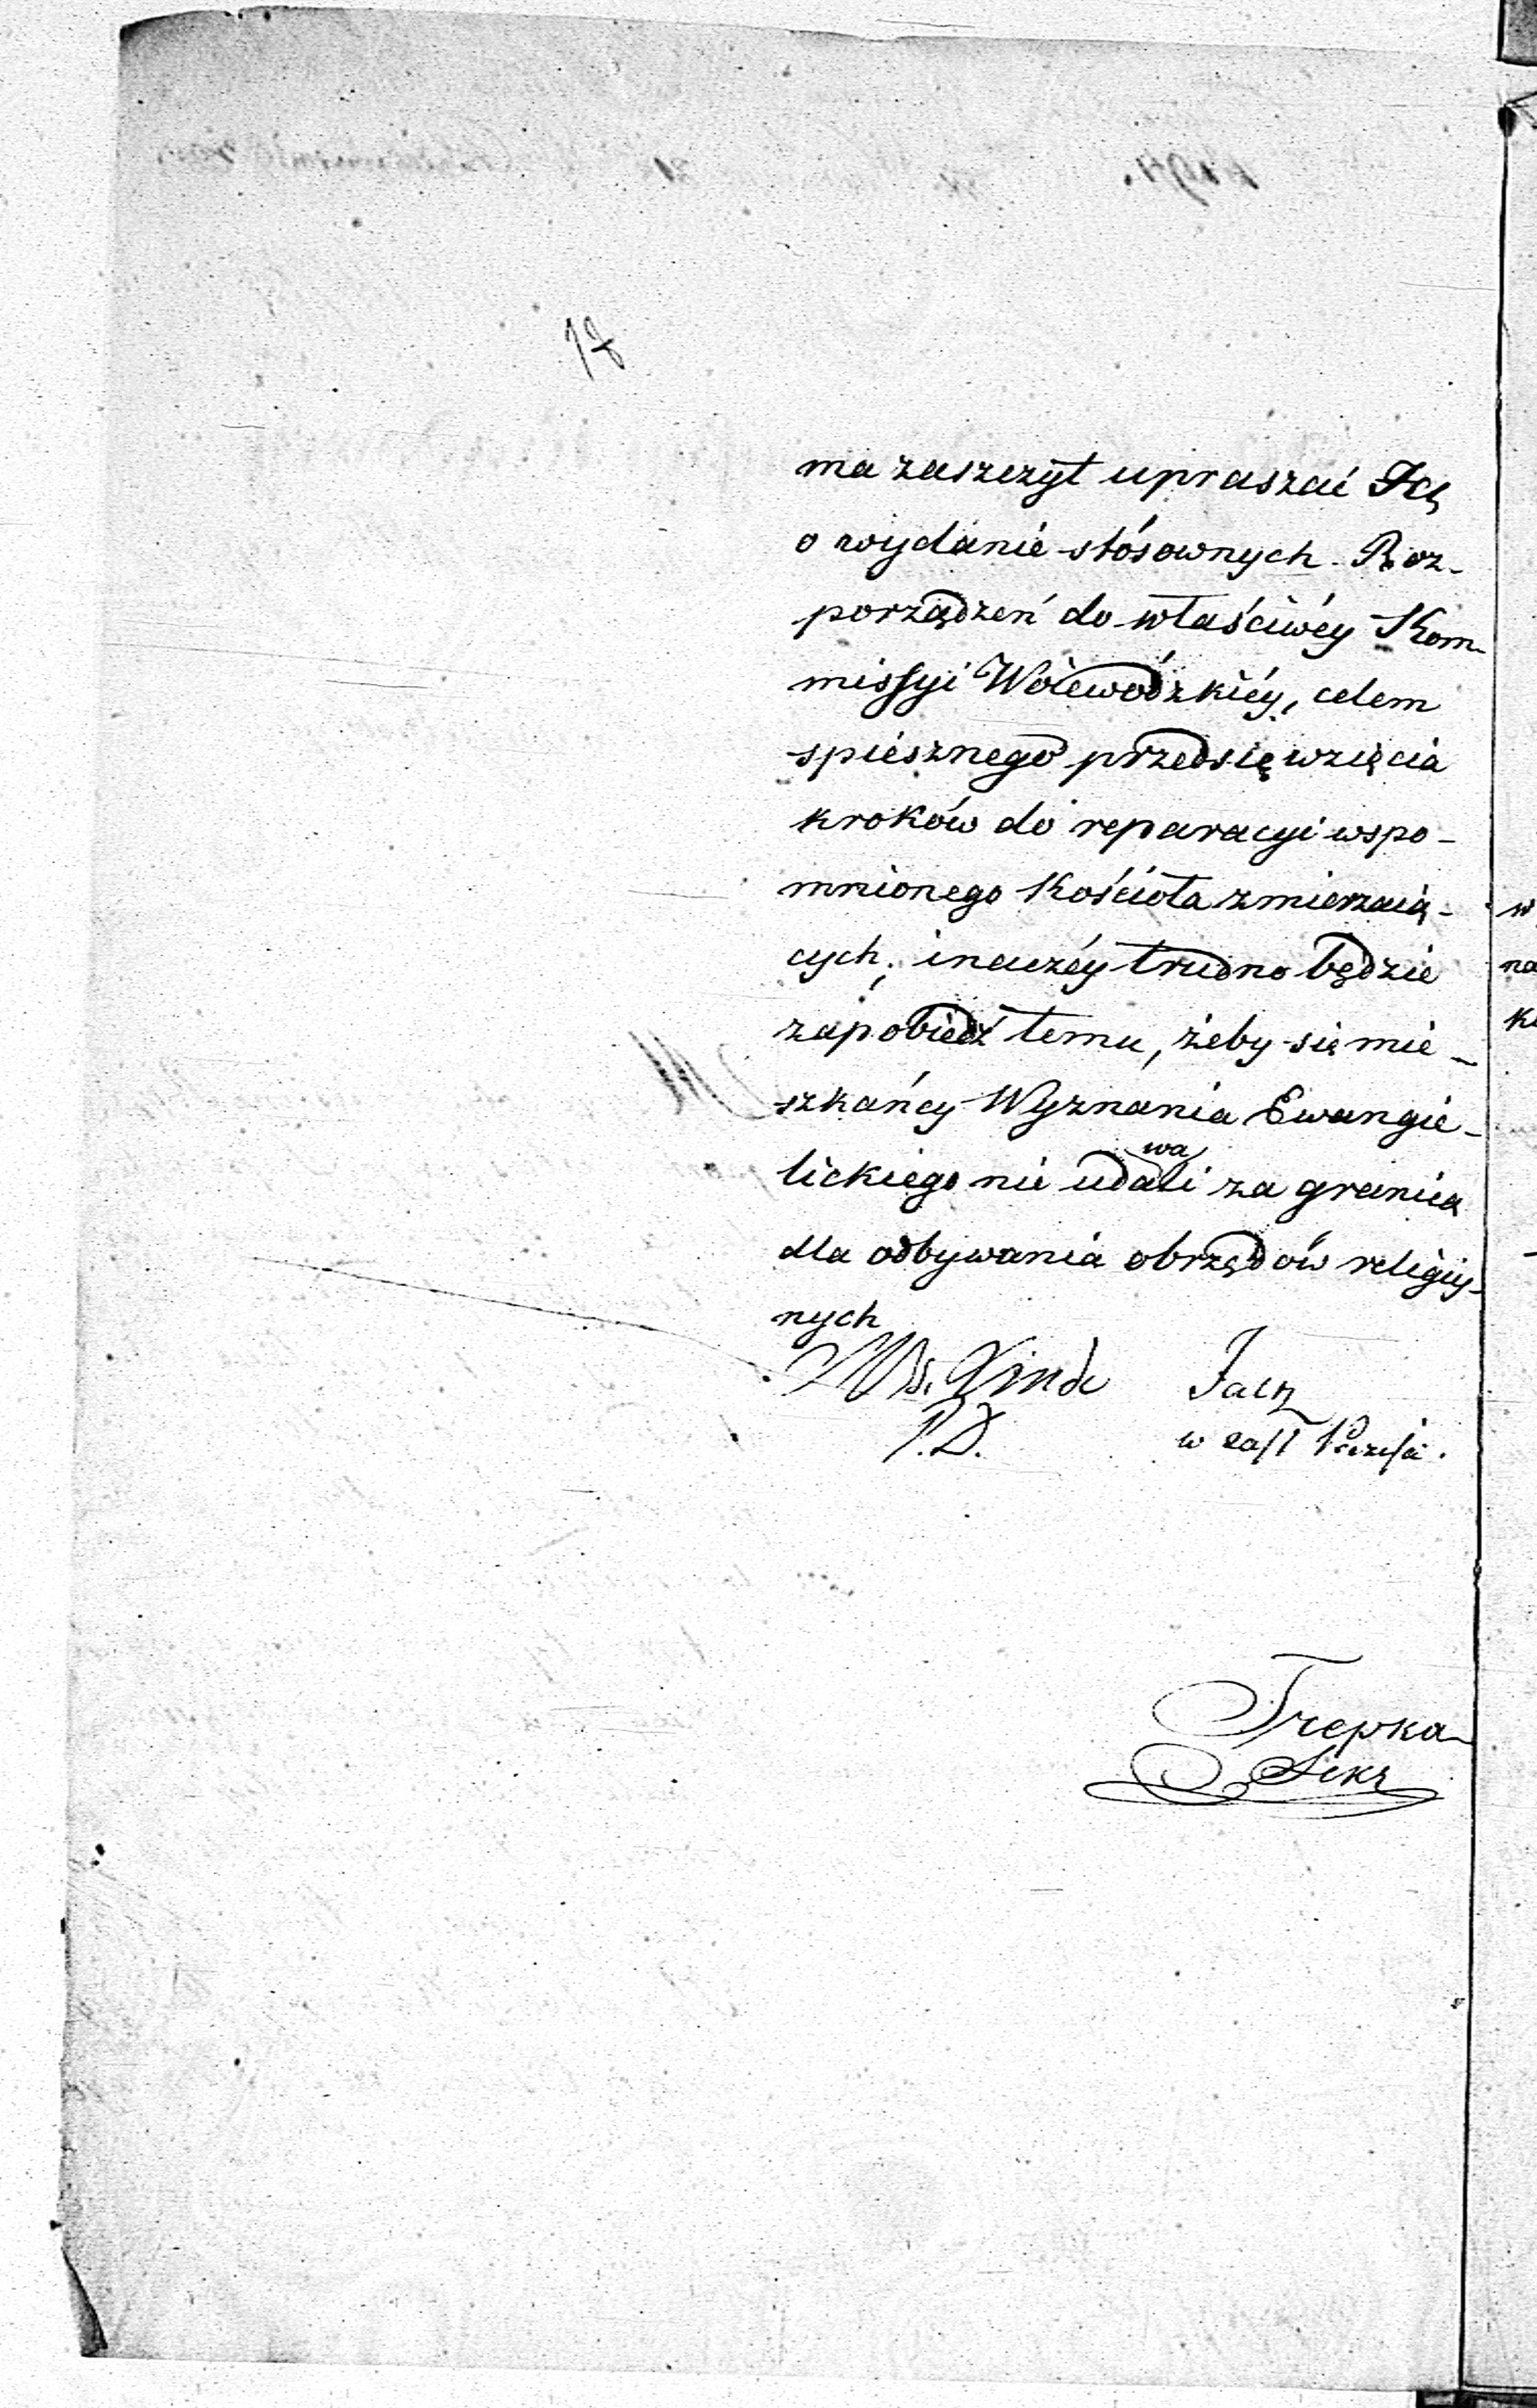 ma zaszczyt upraszać Ją
o wydanie stósownych Roz-
porządzeń do właściwéy Kom-
missyi Woiewódzkiéy, celem
spiesznego przedsięwzięcia
kroków do reparacyi wspo-
mnionego Kościoła zmierzaią-
cych; inaczéy trudno będzie
zapobiedź temu, żeby się mie-
szkańcy Wyznania Ewangie-
wa
lickiego nie udali za granicą
dla odbywania obrzędów religiy-
nych
Linde
P.D.
w zast Prezesa.
Trepka
Sekr